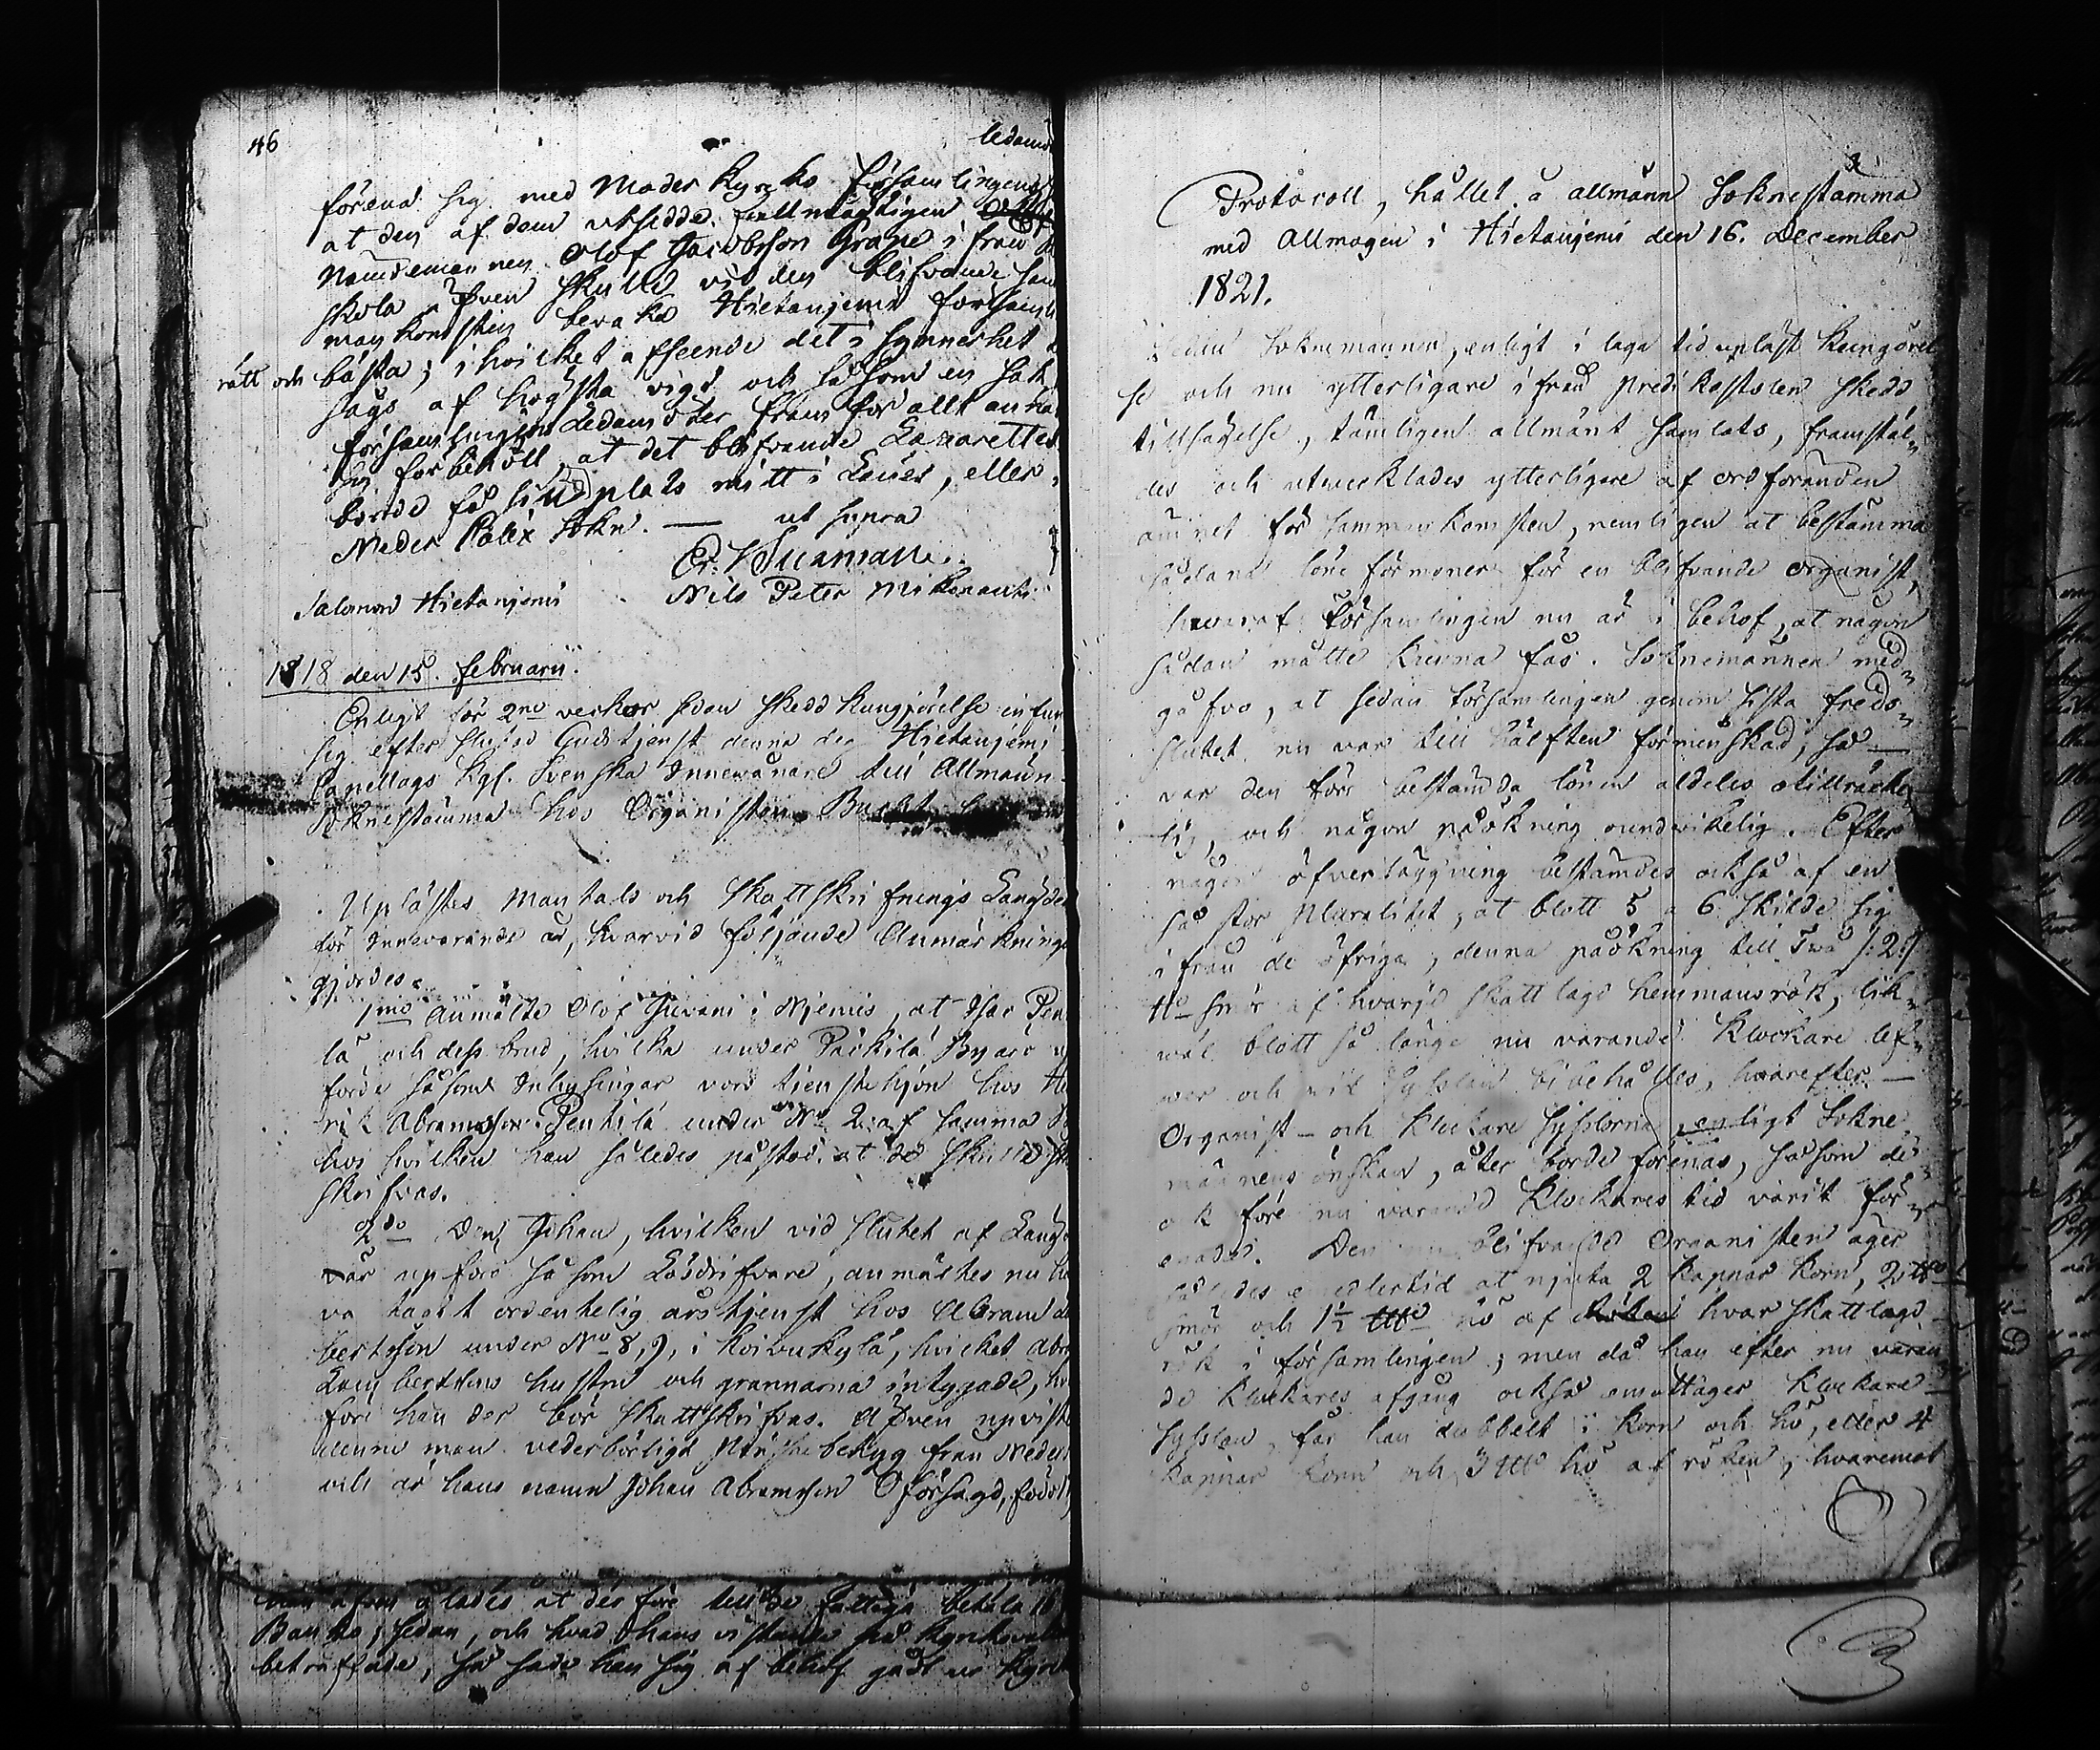 46
ledam
förena sig med Moder Kyrko församlingens
at den af dem utsedde fullmägtigen
Nämdemannen Olof Jacobsson Grape i från
skola äfven skulle vid den blifvande sam
mankomsten bevaka Hietaniemi församl
rätt och bästa; i hvilket afseende det i synnerhet
sågs af högsta vigt och såsom en sak
församlingens Ledamöter fram för allt annat
sig förbehöll, at det blifvande Lazarettet
borde få sin plats mitt i Länet, eller i
Neder Calix Sokn. — ut supra
Nils Peter Mikonanti
Salomon Hietaniemi
1818 den 15. februarii.
Enligt för 2ne veckor sedan skedd Kungjörelse infun
sig efter slutad Gudstjenst denna dag Hietaniemi
Capellags Kgl. Svenska Innewånare till Allmän
Soknestämma hos Organisten Bucht
Uplästes Mantals och Skattskrifnings Längden
för Innevarande år, hvarvid följande Anmärkninga
gjordes.
1mo Anmälte Olof i Niemis, at Isac Pen
la och dess brud, hvilka under Päkkilä By äro up
förde såsom Inhysingar vore tjenstehjon hos He
rik Abramsson Penkilä under No 2 af samma
hos hvilken han således påstod at de skulle
skrifvas.
2do Den Johan, hvilken vid slutet af Läng
är upförd såsom Lösdrifvare, anmältes nu ha
va tagit ordentelig årstjenst hos Abram
bertsson under No 8, 9, i Koivukylä, hvilket Abra
Lambertssons hustru och grannarna intygade, hva
före han der bör skattskrifvas. Äfven upviste
denne man vederbörligt Prästebetyg från Neder
och är hans namn Johan Abramsson Oförsagd, född
han äfven ålades at der före till de fattiga betala 16
Banko; sedan, och hvad hans vistande på Kyrkovallen
beträffade, så sade han sig af behof gådt ur Kyrk
Protocoll, hållet å allmänn Soknestämma
med Allmogen i Hietaniemi den 16. December
1821.
Sedan Soknemännen, enligt i laga tid upläst Kungörel
se och nu ytterligare i från predikostolen skedd
tillsägelse, tämligen allmänt samlats, framstäl„
des och utvecklades ytterligare af ordföranden
ämnet för sammankomsten, nemligen at bestämma
sådana löne förmoner för en blifvande organist,
hvaraf Församlingen nu är i behof, at någon
sådan måtte kunna fås. Soknemännen med„
gåfvo, at sedan församlingen genom sista freds„
slutet nu var till hälften förminskad, så —
var den före bestämda lönen aldeles otillräcke„
lig, och någon påökning oundvikelig. Efter
någon öfverläggning bestämdes också af en
så stor Pluralitet, at blott 5 a 6 skilde sig
ifrån de öfriga, denna påökning till Två /:2:/
smör af hvarje skattlagd hemmansrök, lik„
väl blott så länge nu varande Klockare lef„
ver och vid Sysslan bibehålles, hvarefter —
Organist- och Klockare Sysslorna enligt Sokne
männens önskan, åter borde förenas, såsom de
ock före nu varande Klockares tid varit för„
enade. Den nu blifvande Organisten äger
således emedlertid at njuta 2 Kappar Korn, 2
smör och 1½ hö af hvar skattlagd
rök i församlingen; men då han efter nu varan
de Klockares afgång också emottager Klockare
Sysslan, får han dubbelt i korn och hö, eller 4
Kappar Korn och 3 hö af röken, hvaremot